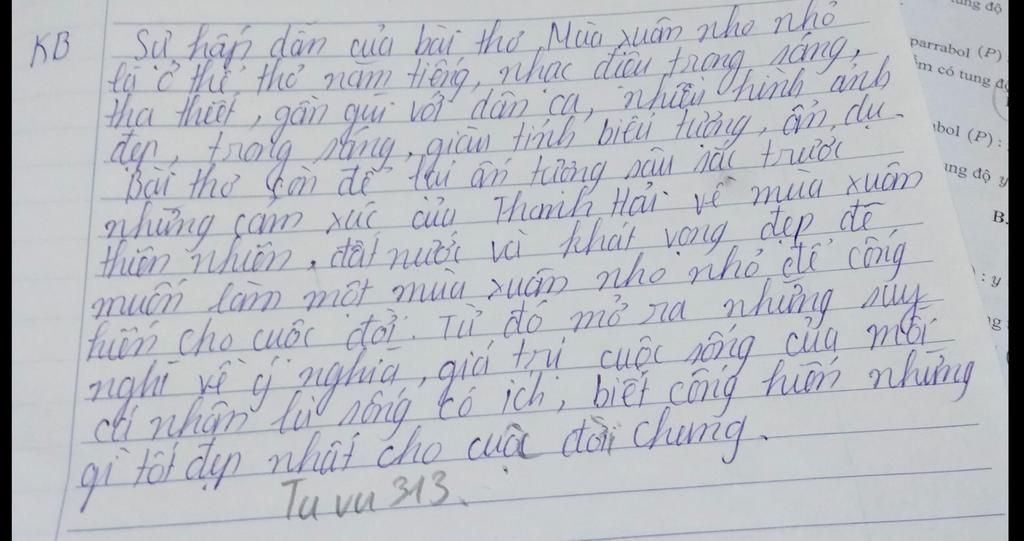 KB
Sự hấp dẫn của bài thơ Mùa xuân nho nhỏ
là ở thể thơ năm tiếng, nhạc điệu trong sáng,
tha thiết, gần gũi với dân ca, nhiều hình ảnh
đẹp, trong sáng, giàu tính biểu tượng, ẩn dụ.
Bài thơ còn để lại ấn tượng sâu sắc trước
những cảm xúc của Thanh Hải về mùa xuân
thiên nhiên, đất nước và khát vọng đẹp đẽ
muốn làm một mùa xuân nho nhỏ để cống
hiến cho cuộc đời. Từ đó mở ra những suy
nghĩ về ý nghĩa, giá trị cuộc sống của mỗi
cá nhân là sống có ích, biết cống hiến những
gì tốt đẹp nhất cho cuộc đời chung.
Tu vu 313.
tung độ
parrabol (P)
ểm có tung độ
bol (P) :
ung độ y
B.
: y